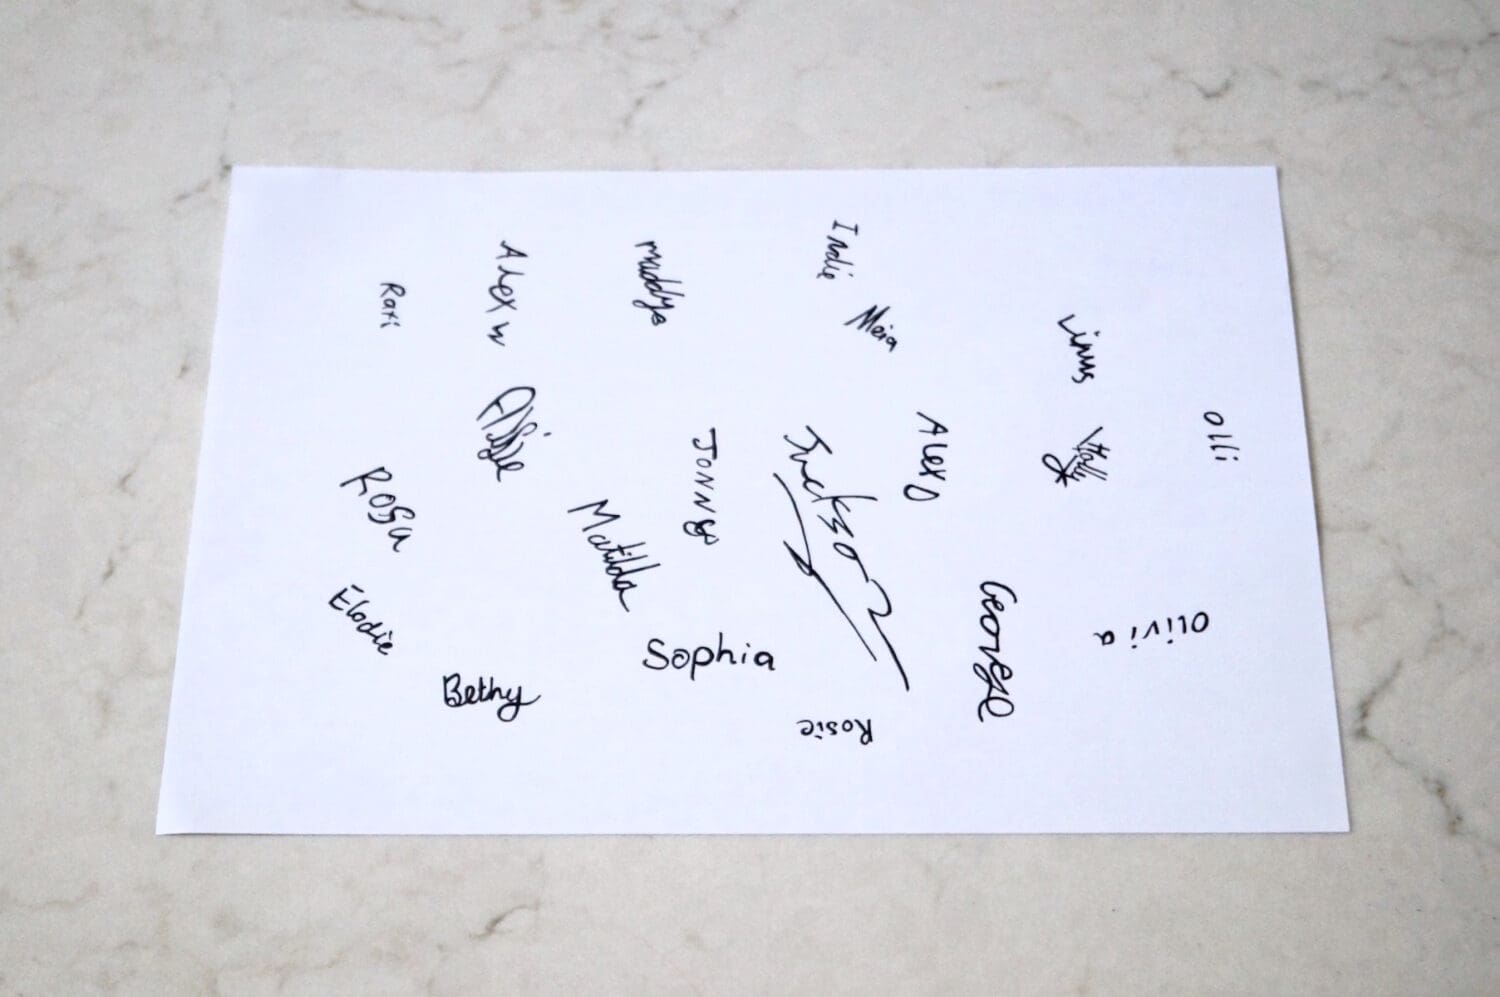 Indie
Alex W
maddy
Rafi
Meia
Linus
Alfie
Olli
Alex D
Jonny
Jackson
Vitaly
Rosa
Matilda
George
Elodie
Olivia
Sophia
Bethy
Rosie